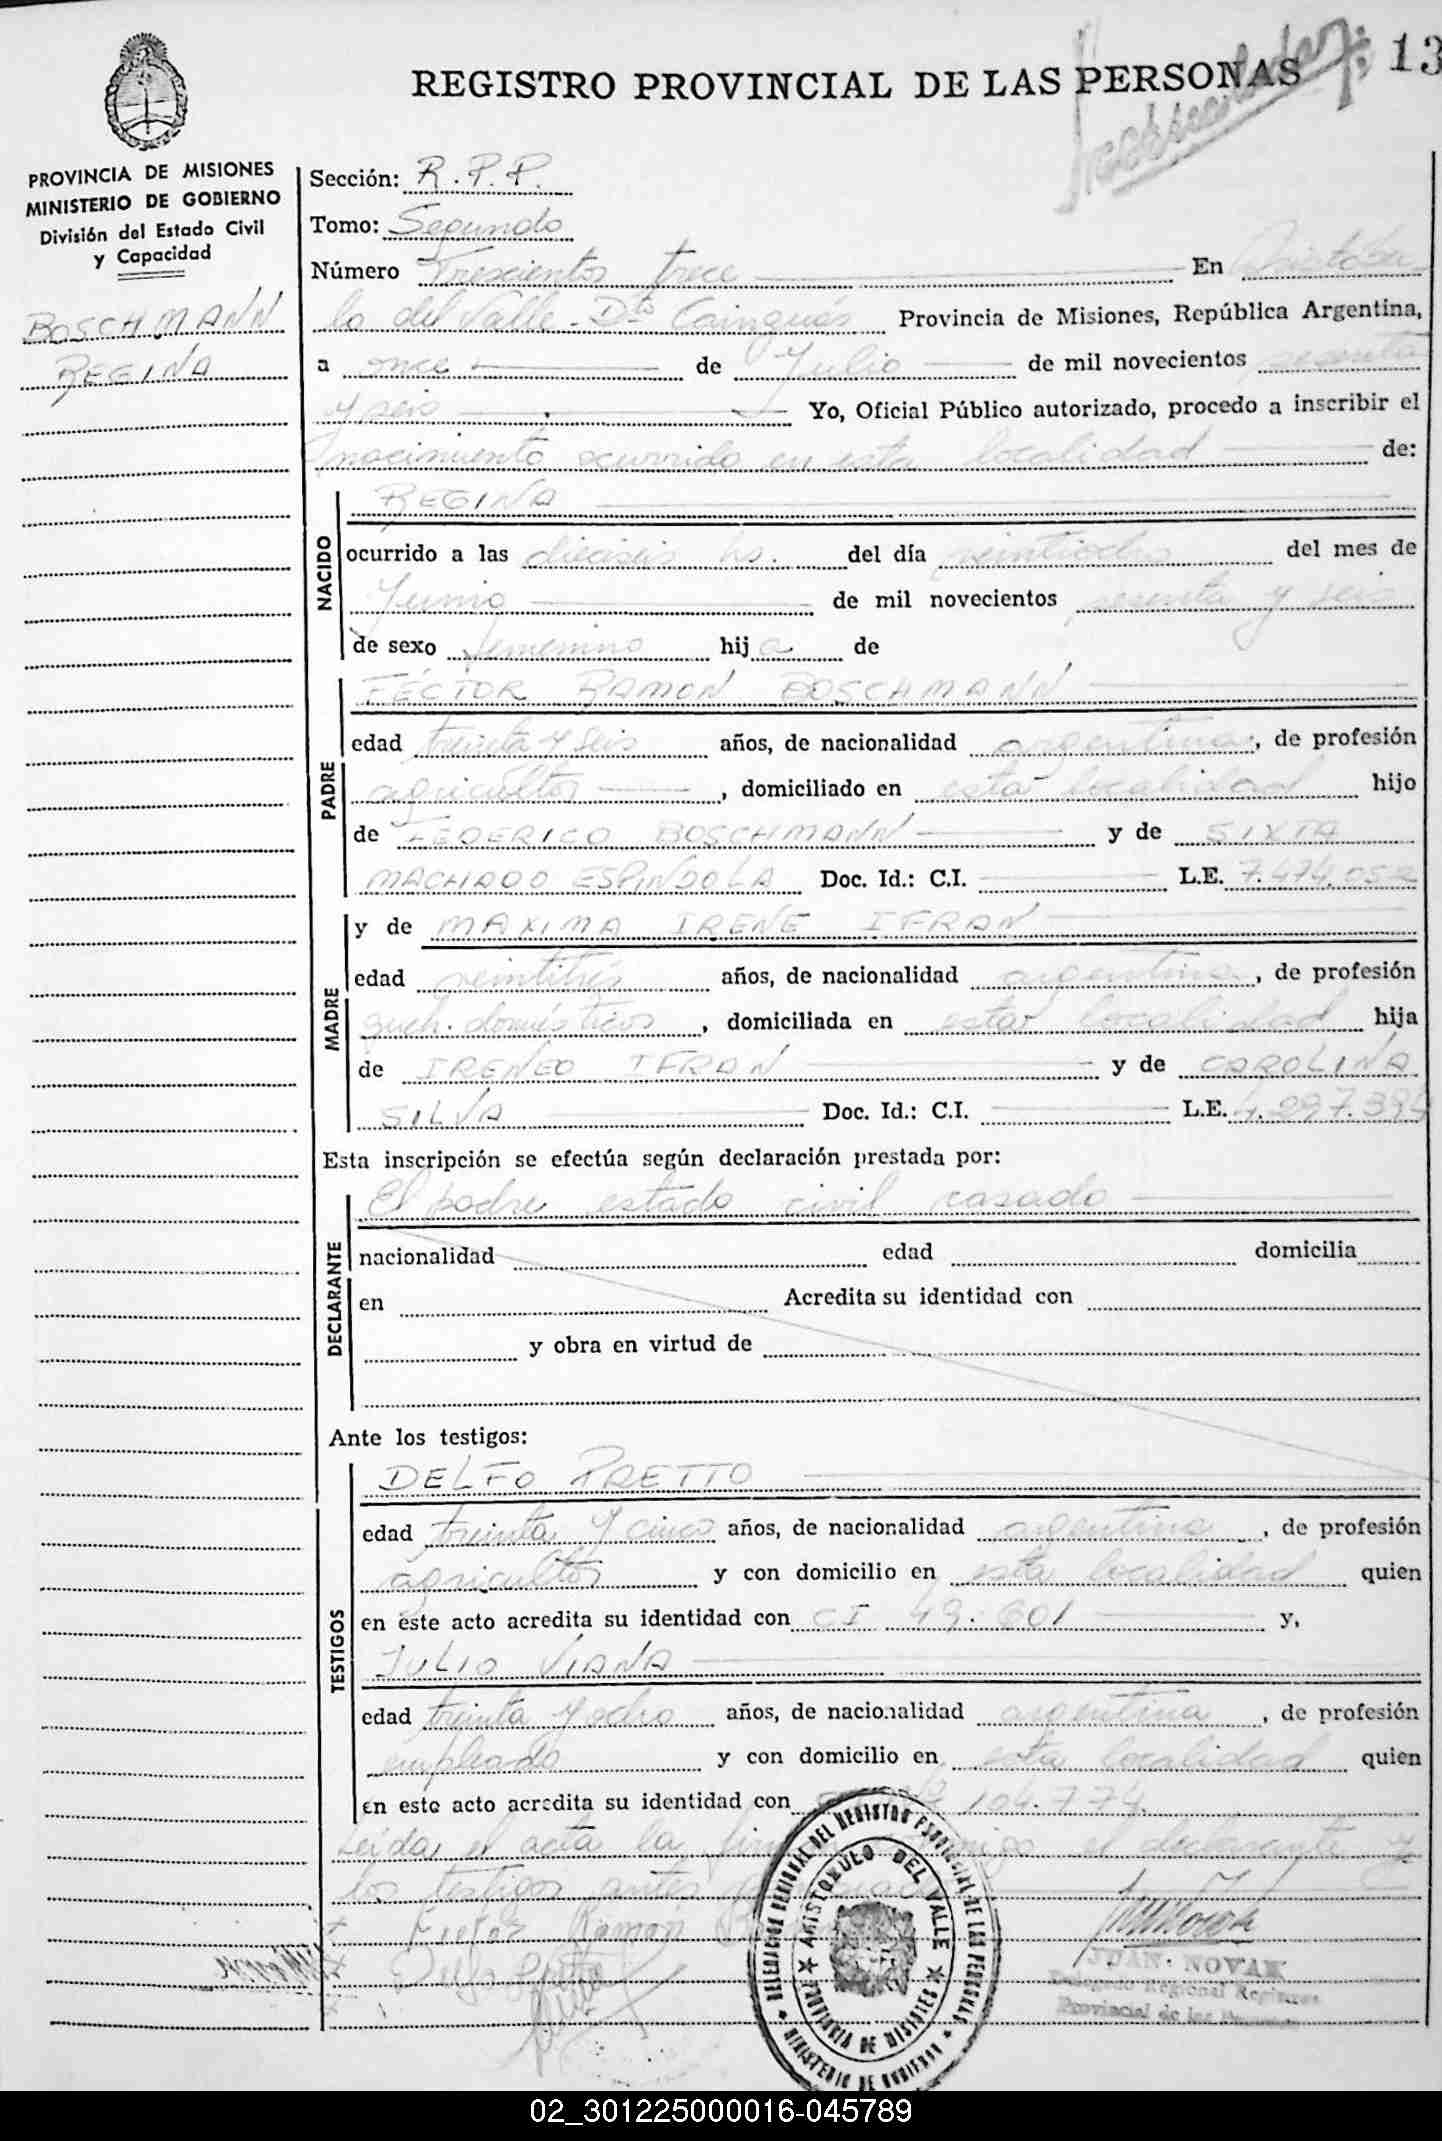 REGISTRO PROVINCIAL DE LAS PERSONAS
13
PROVINCIA DE MISIONES
MINISTERIO DE GOBIERNO
División del Estado Civil
y Capacidad
BOSCHMANN
REGINA
Sección: R.P.P.
Tomo: Segundo
Número Trescientos trece En Aristóbu
lo del Valle - Dto Cainguás Provincia de Misiones, República Argentina,
a once de Julio de mil novecientos sesenta
y seis Yo, Oficial Público autorizado, procedo a inscribir el
nacimiento ocurrido en esta localidad de:
NACIDO
REGINA
ocurrido a las dieciseis hs. del día veintiocho del mes de
Junio de mil novecientos sesenta y seis
de sexo femenino hija de
PADRE
FÉCTOR RAMON BOSCHMANN
edad treinta y seis años, de nacionalidad argentina, de profesión
agricultor, domiciliado en esta localidad hijo
de FEDERICO BOSCHMANN y de SIXTA
MACHADO ESPINDOLA Doc. Id.: C.I. L.E. 7.474.052
MADRE
y de MAXIMA IRENE IFRAN
edad veintitrés años, de nacionalidad argentina, de profesión
queh. domésticos, domiciliada en esta localidad hija
de IRENEO IFRAN y de CAROLINA
SILVA Doc. Id.: C.I. L.E.
Esta inscripción se efectúa según declaración prestada por:
DECLARANTE
El padre estado civil casado
nacionalidad edad domicilia
en Acredita su identidad con
y obra en virtud de
Ante los testigos:
TESTIGOS
DELFO PRETTO
edad treinta y cinco años, de nacionalidad argentina, de profesión
agricultor y con domicilio en esta localidad quien
en este acto acredita su identidad con CI 49.601 y,
JULIO VIANA
edad treinta y ocho años, de nacionalidad argentina, de profesión
empleado y con domicilio en esta localidad quien
en este acto acredita su identidad con 104.774.
Leida el acta la el declarante y
los testigos antes
Ramón
DELEGACION REGIONAL DEL REGISTRO PROVINCIAL DE LAS PERSONAS
ARISTOBULO DEL VALLE
PROVINCIA DE MISIONES
MINISTERIO DE GOBIERNO
JUAN NOVAK
Delegado Regional Registro
Provincial de las Personas
02_301225000016-045789